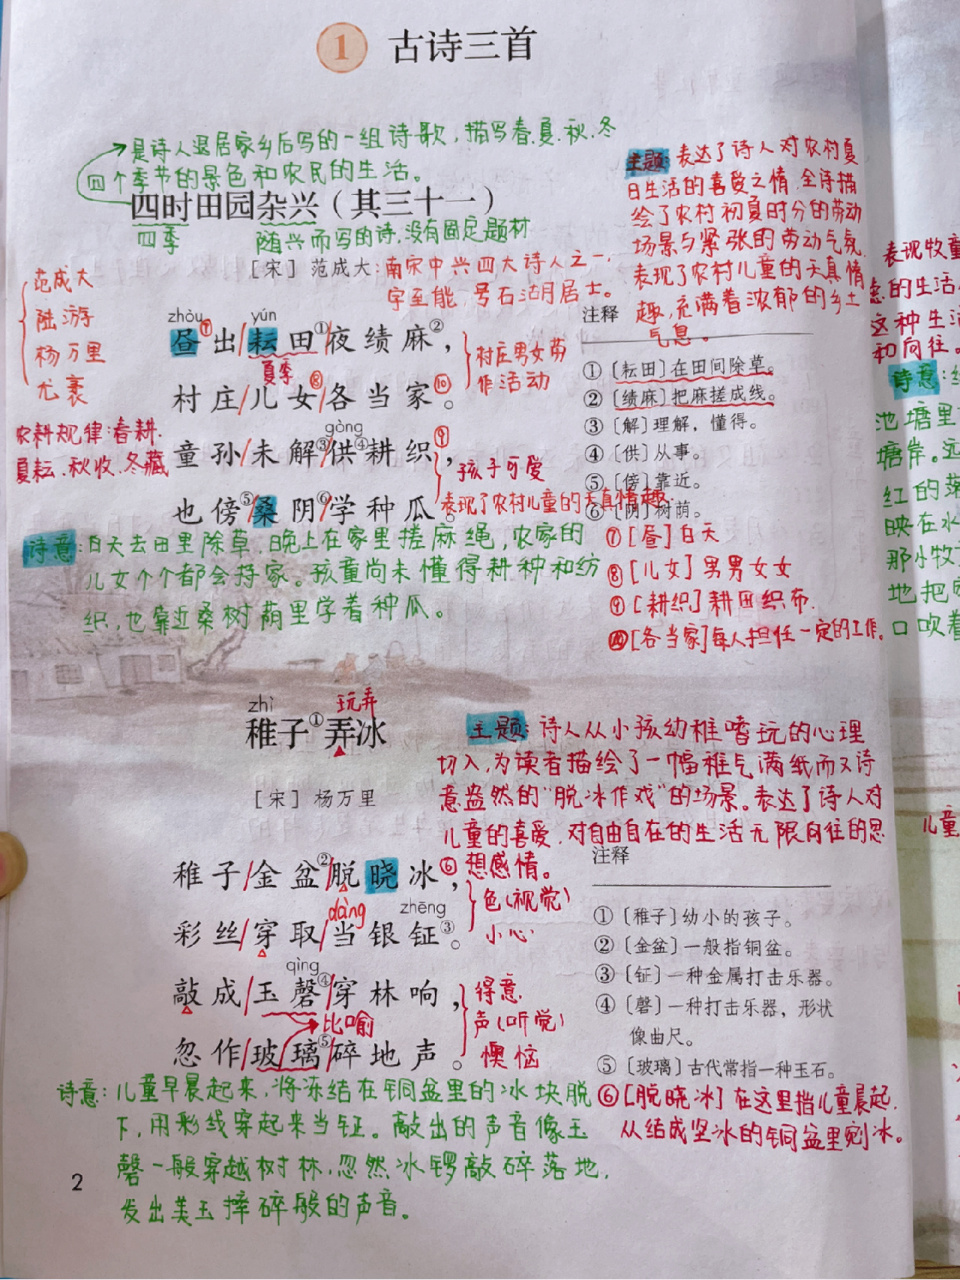 1 古诗三首
是诗人退居家乡后写的一组诗歌，描写春.夏.秋.冬
四个季节的景色和农民的生活。
四时田园杂兴（其三十一）
四季 随兴而写的诗，没有固定题材
［宋］范成大：南宋中兴四大诗人之一.
字至能.号石湖居士。
范成大
陆游
杨万里
尤袤
农耕规律：春耕.
夏耘.秋收.冬藏
主题：表达了诗人对农村夏
日生活的喜爱之情，全诗描
绘了农村初夏时分的劳动
场景与紧张的劳动气氛.
表现了农村儿童的天真情
趣，充满着浓郁的乡土
气息。
zhòu yún
昼⑦出/耘田①夜绩麻②，
夏季
村庄/儿女⑧/各当家⑩。
村庄男女劳
作活动
gòng
童孙/未解③/供④耕织⑨，
孩子可爱
也傍⑤/桑阴⑥/学种瓜。
表现了农村儿童的天真情趣.
诗意：白天去田里除草.晚上在家里搓麻绳，农家的
儿女个个都会持家。孩童尚未懂得耕种和纺
织，也靠近桑树荫里学着种瓜。
注释
①〔耘田〕在田间除草。
②〔绩麻〕把麻搓成线。
③〔解〕理解，懂得。
④〔供〕从事。
⑤〔傍〕靠近。
⑥〔阴〕树荫。
⑦［昼］白天
⑧［儿女］男男女女
⑨［耕织］耕田织布.
⑩［各当家］每人担任一定的工作。
zhì 玩弄
稚子①弄冰
［宋］杨万里
主题：诗人从小孩幼稚嗜玩的心理
切入，为读者描绘了一幅稚气满纸而又诗
意盎然的“脱冰作戏”的场景。表达了诗人对
儿童的喜爱.对自由自在的生活无限向往的思
想感情。
稚子/金盆②/脱晓冰⑥，
色（视觉）
dàng zhēng
彩丝/穿取/当银钲③。
小心
qìng
敲成/玉磬④/穿林响，
得意
声（听觉）
比喻
忽作/玻璃⑤/碎地声。
懊恼
诗意：儿童早晨起来，将冻结在铜盆里的冰块脱
下，用彩线穿起来当钲。敲出的声音像玉
磬一般穿越树林，忽然冰锣敲碎落地，
发出美玉摔碎般的声音。
注释
①〔稚子〕幼小的孩子。
②〔金盆〕一般指铜盆。
③〔钲〕一种金属打击乐器。
④〔磬〕一种打击乐器，形状
像曲尺。
⑤〔玻璃〕古代常指一种玉石。
⑥［脱晓冰］在这里指儿童晨起.
从结成坚冰的铜盆里剜冰。
2
表现牧童
的生活
这种生活
和向往。
诗意：
池塘里
塘岸。远
红的落
映在水
那小牧
地把
口吹着
儿童